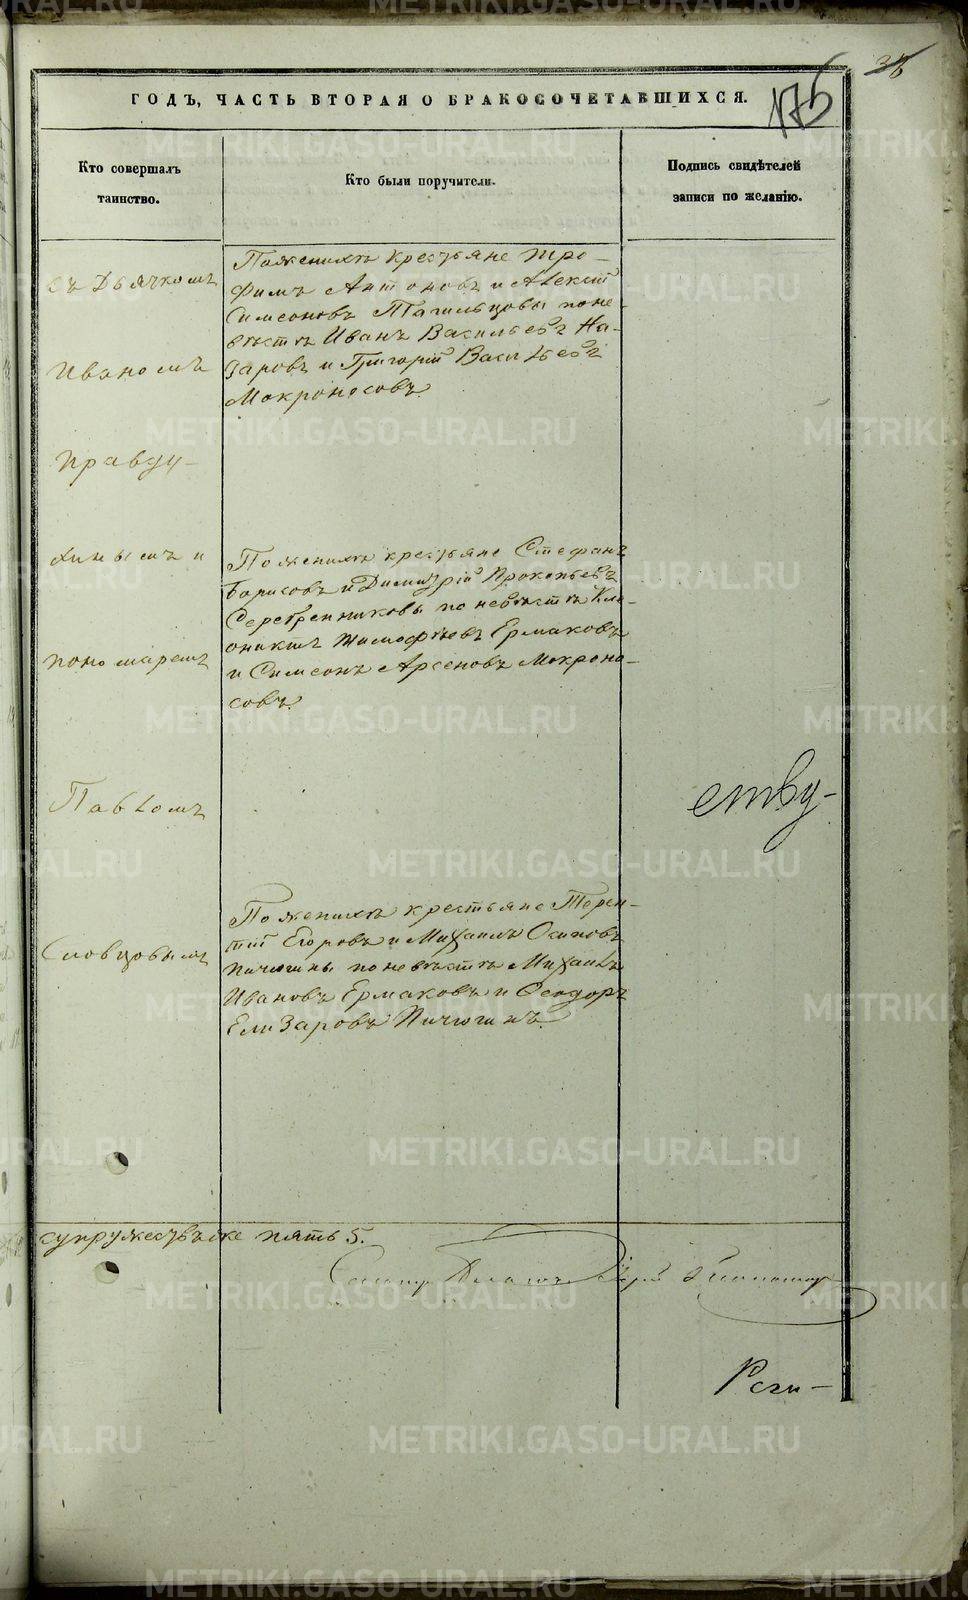 175
ГОДЪ, ЧАСТЬ ВТОРАЯ О БРАКОСОЧЕТАВШИХСЯ.
Кто совершалъ
таинство.
Кто были поручители.
Подпись свидѣтелей
записи по желанію.
съ Дьячкомъ
Иваномъ
Правду-
хинымъ и
пономаремъ
Павломъ
Словцовымъ
По женихѣ крестьяне Тро-
фимъ Антоновъ и Алексѣй
Симеоновъ Тагильцовы по не-
вѣстѣ Иванъ Васильевъ На-
заровъ и Григорій Васильевъ
Мокроносовъ
По женихѣ крестьяне Стефанъ
Борисовъ и Димитрій Прокопьевъ
Серебренниковы по невѣстѣ Кле-
оникъ Тимофѣевъ Ермаковъ
и Симеонъ Арсеновъ Мокроно-
совъ.
По женихѣ крестьяне Терен-
тій Егоровъ и Михаилъ Осиповъ
Пичюгины по невѣстѣ Михаилъ
Ивановъ Ермаковъ и Ѳеодоръ
Елизаровъ Пичюгинъ.
ству-
супружествъ же пять 5.
Реги-
METRIKI.GASO-URAL.RU